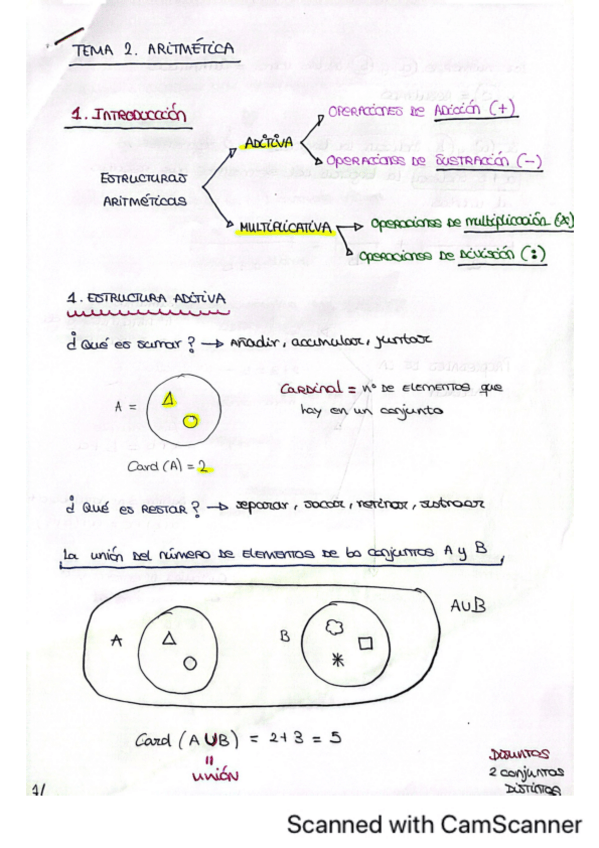 TEMA 2. ARITMÉTICA
1. INTRODUCCIÓN
OPERACIONES DE ADICIÓN (+)
ADITIVA
OPERACIONES DE SUSTRACCIÓN (-)
ESTRUCTURAS
ARITMÉTICAS
MULTIPLICATIVA
Operaciones de multiplicación (x)
Operaciones de división (:)
1. ESTRUCTURA ADITIVA
¿Qué es sumar? → Añadir, acumular, juntar
A =
CARDINAL = nº de elementos que
hay en un conjunto
Card (A) = 2
¿Qué es RESTAR? → separar, sacar, retirar, sustraer
La unión del número de elementos de los conjuntos A y B
AUB
A
B
Card (AUB) = 2+3 = 5
=
unión
DISJUNTOS
2 conjuntos
DISTINTOS
1/
Scanned with CamScanner